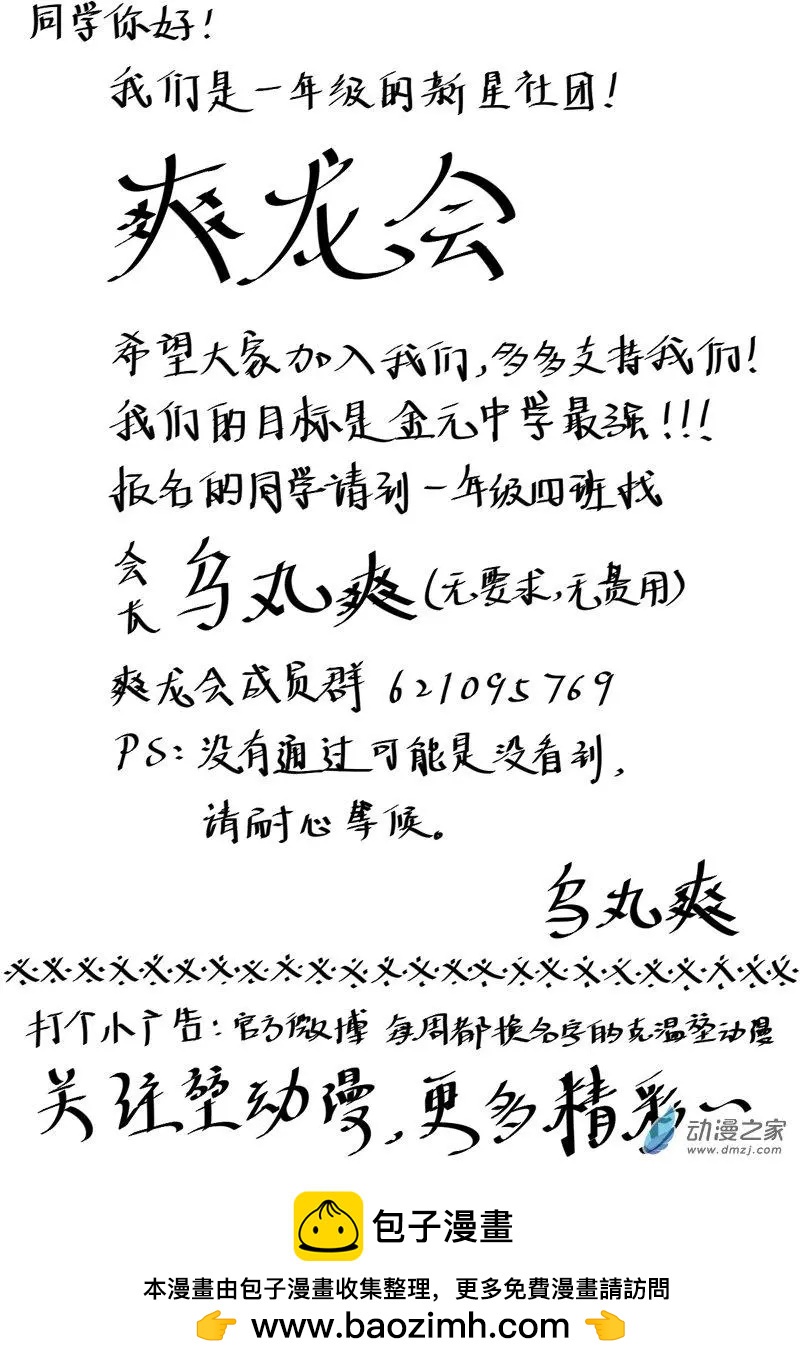 同学你好！
我们是一年级的新星社团！
爽龙会
希望大家加入我们，多多支持我们！
我们的目标是金元中学最强！！！
报名的同学请到一年级四班找
会长 乌丸爽（无要求，无费用）
爽龙会成员群 621095769
PS：没有通过可能是没看到，
请耐心等候。
乌丸爽
打个小广告：官方微博 每周都换名字的克温堃动漫
关注堃动漫，更多精彩～
动漫之家
www.dmzj.com
包子漫畫
本漫畫由包子漫畫收集整理，更多免費漫畫請訪問
👉 www.baozimh.com 👈